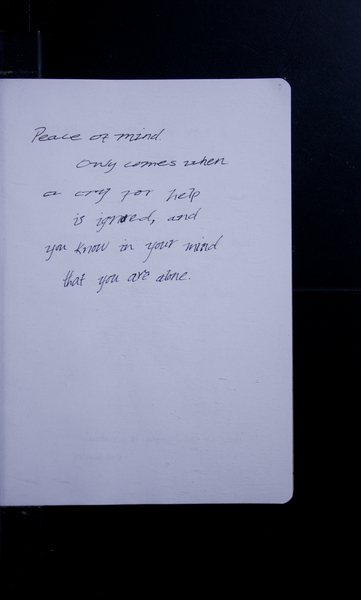 Peace of mind.
Only comes when
a cry for help
is ignored, and
you know in your mind
that you are alone.